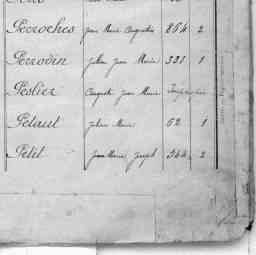 Perroches Jean Marie Augustin 854 2
Perrodin Julien Jean Marie 331 1
Peslier Auguste Jean Marie
Petaut Julien Marie 62 1
Petit Jean Marie Joseph 344 2